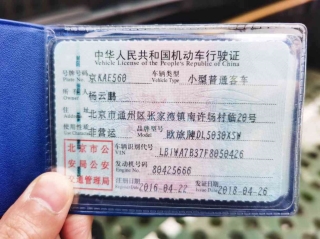 中华人民共和国机动车行驶证
Vehicle License of the People's Republic of China
号牌号码 京KAE560 车辆类型 Vehicle Type 小型普通客车
所有人 杨云鹏
住址 北京市通州区张家湾镇南许场村临20号
使用性质 非营运 品牌型号 Model 欧旅牌DL5030XSW
北京市公安局公安交通管理局
车辆识别代号 VIN LB1WA7B37F8050426
发动机号码 Engine No. 80425666
注册日期 2016-04-22 发证日期 Issue Date 2018-04-26